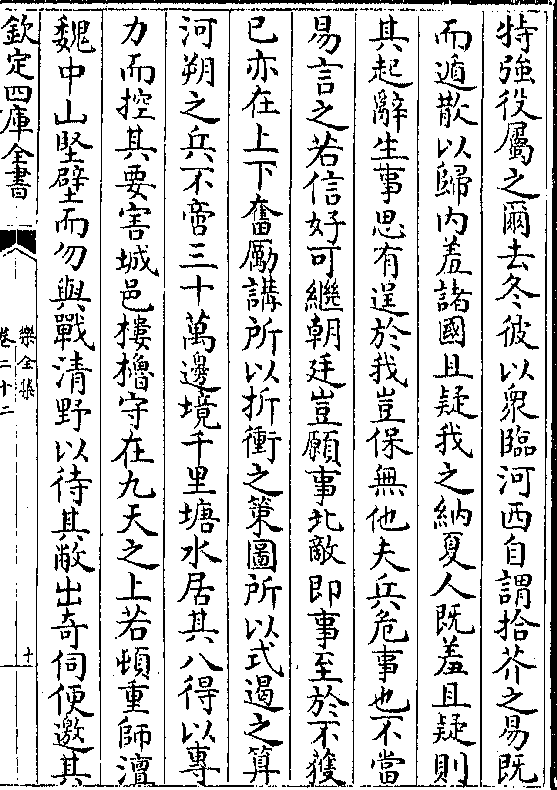 特強役屬之爾去冬彼以衆臨河西自謂拾芥之易既
而遁散以歸内羞諸國且疑我之納夏人既羞且疑則
其起辭生事思有逞於我豈保無他夫兵危事也不當
易言之若信好可繼朝廷豈願事北敵即事至於不獲
已亦在上下奮勵講所以折衝之策圖所以式遏之算
河朔之兵不啻三十萬邊境千里塘水居其八得以專
力而控其要害城邑樓櫓守在九天之上若頓重師澶
魏中山堅壁而勿與戰清野以待其敝出奇伺便邀其
欽定四庫全書
樂全集
卷二十二
十